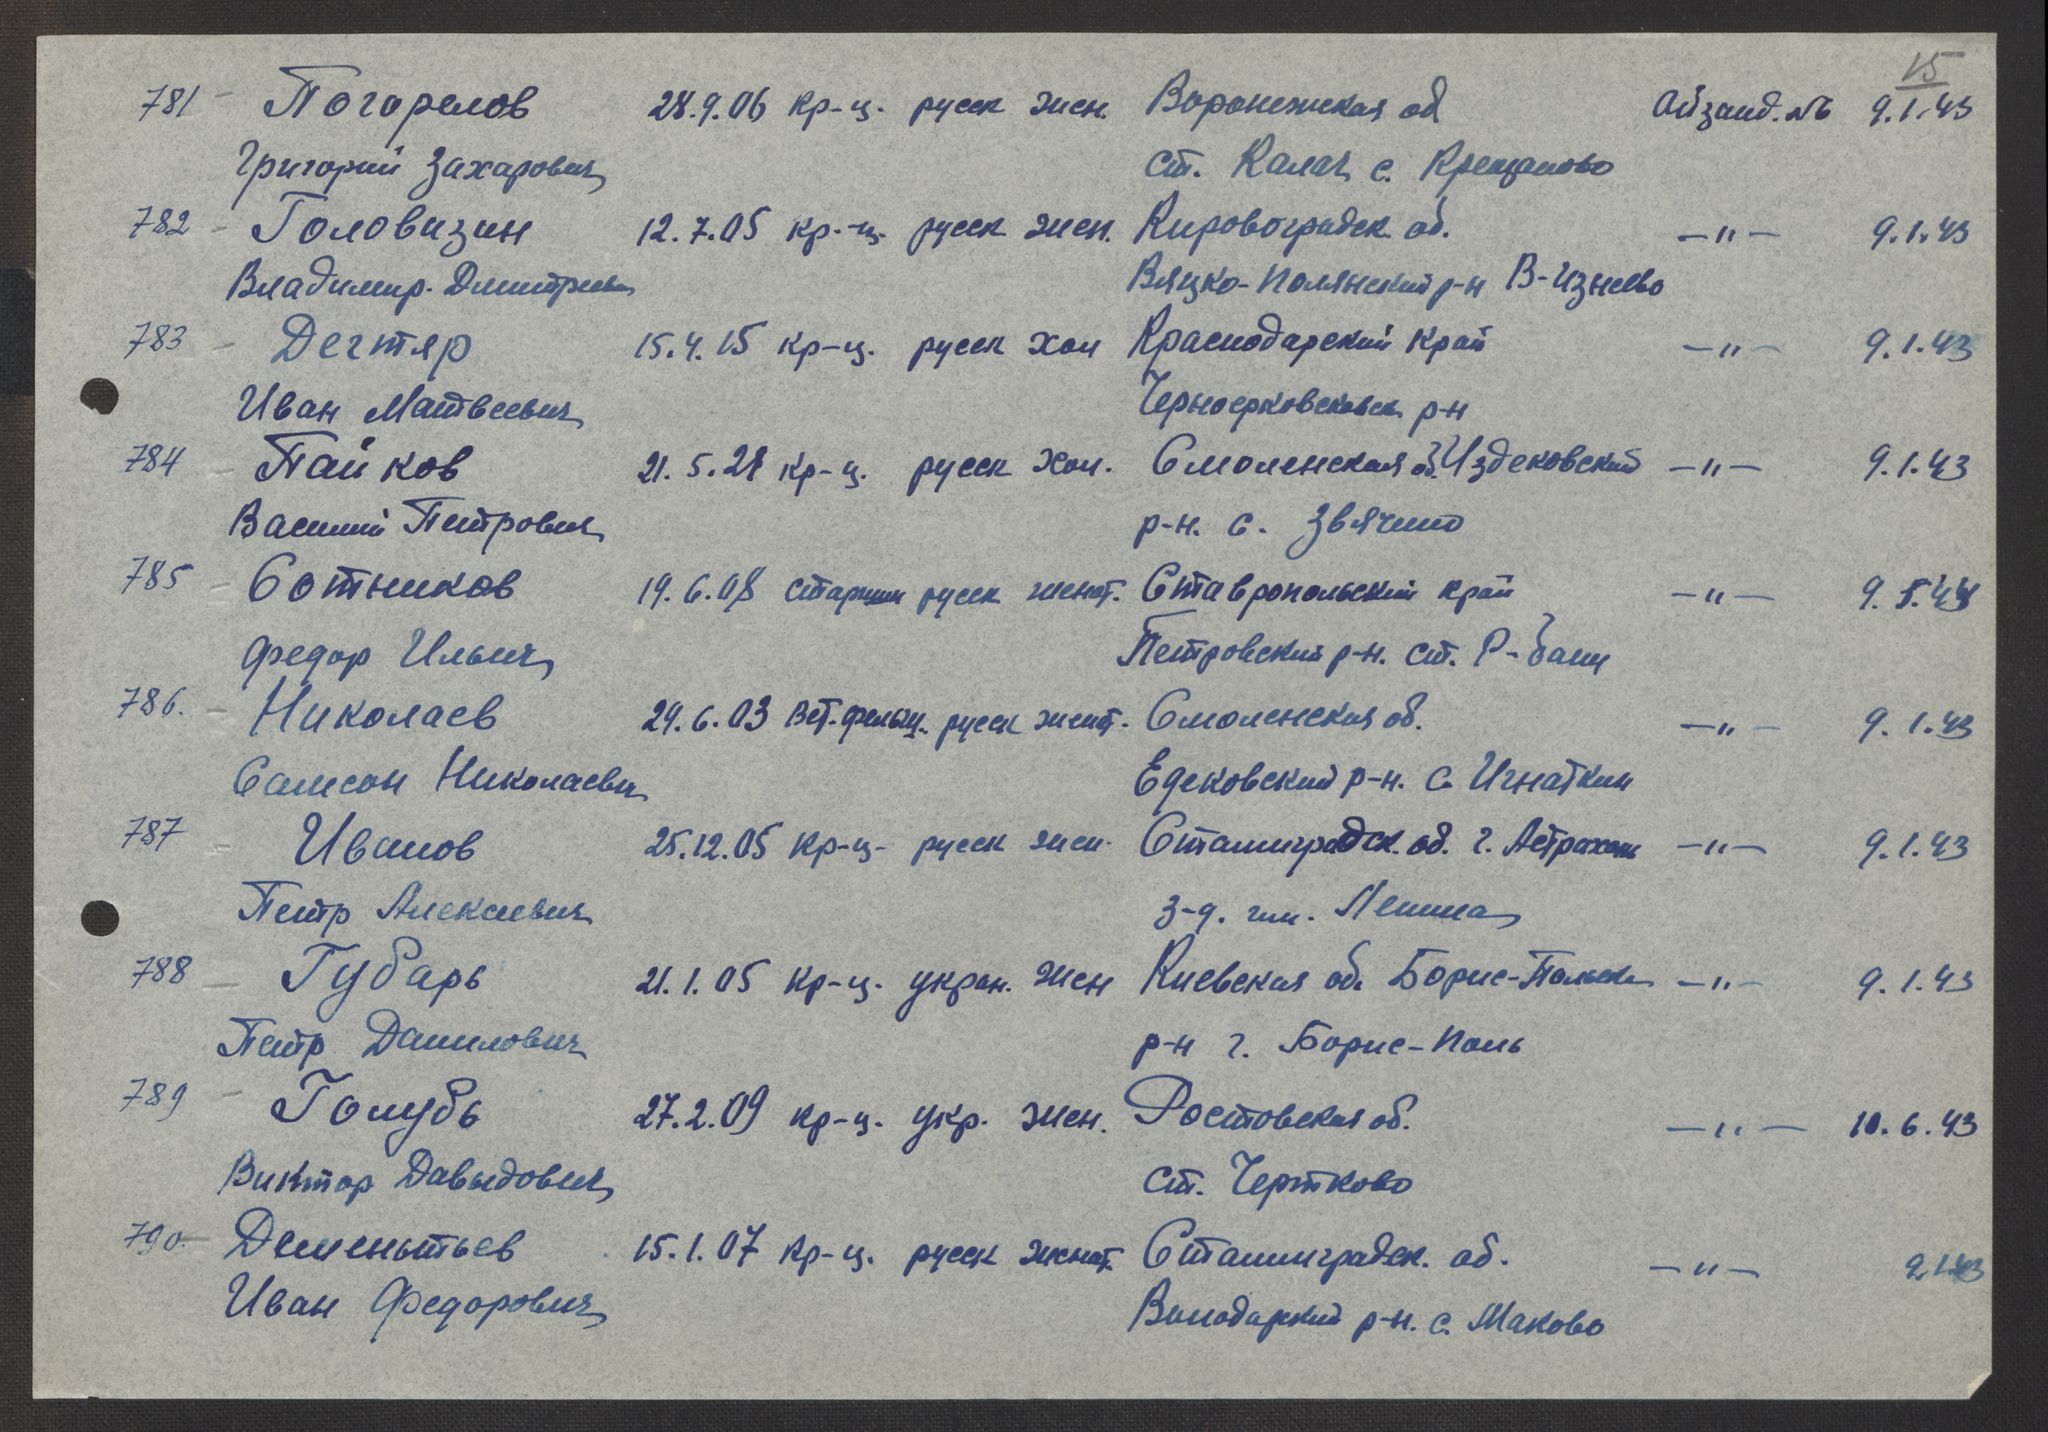 15
781 - Погорелов 28.9.06 кр-ц. русск жен. Воронежская об Айзанд. №6 9.1.43
Григорий Захарович ст. Калач с. Крещаново
782 - Головизин 12.7.05 кр.-ц. русск жен. Кировоградск об. -"- 9.1.43
Владимир Дмитриев Вяцко-Полянский р-н
783 - Дегтяр 15.4.15 кр-ц. русск хол Краснодарский край -"- 9.1.43
Иван Матвеевич р-н
784 - Пайков 21.5.21 кр-ц. русск хол. Смоленская об. Издековский -"- 9.1.43
Василий Петрович р-н. с. Звячино
785 - Сотников 19.6.08 русск женат. Ставропольский край -"- 9.
Федор Ильич Петровский р-н. ст. Р-
786. - Николаев 29.6.03 Вет.фельш. русск женат. Смоленская об. -"- 9.1.43
Самсон Николаевич Едековский р-н. с Игнаткин
787 - Иванов 25.12.05 кр-ц- русск жен. Сталинградск. об. г. Астрахань -"- 9.1.43
Петр Алексеевич з-д. им. Ленина
788 - Губарь 21.1.05 кр-ц. укран. жен Киевская об. Борис-Польск -"- 9.1.43
Петр Данилович р-н г. Борис-Поль
789 - Голубь 27.2.09 кр-ц. укр. жен. Ростовская об. -"- 10.6.43
Виктор Давыдович ст. Чертково
790. - Дементьев 15.1.07 кр-ц. русск женат. Сталинградск. об. -"- 9.1.43
Иван Федорович Володарский р-н. с. Маково